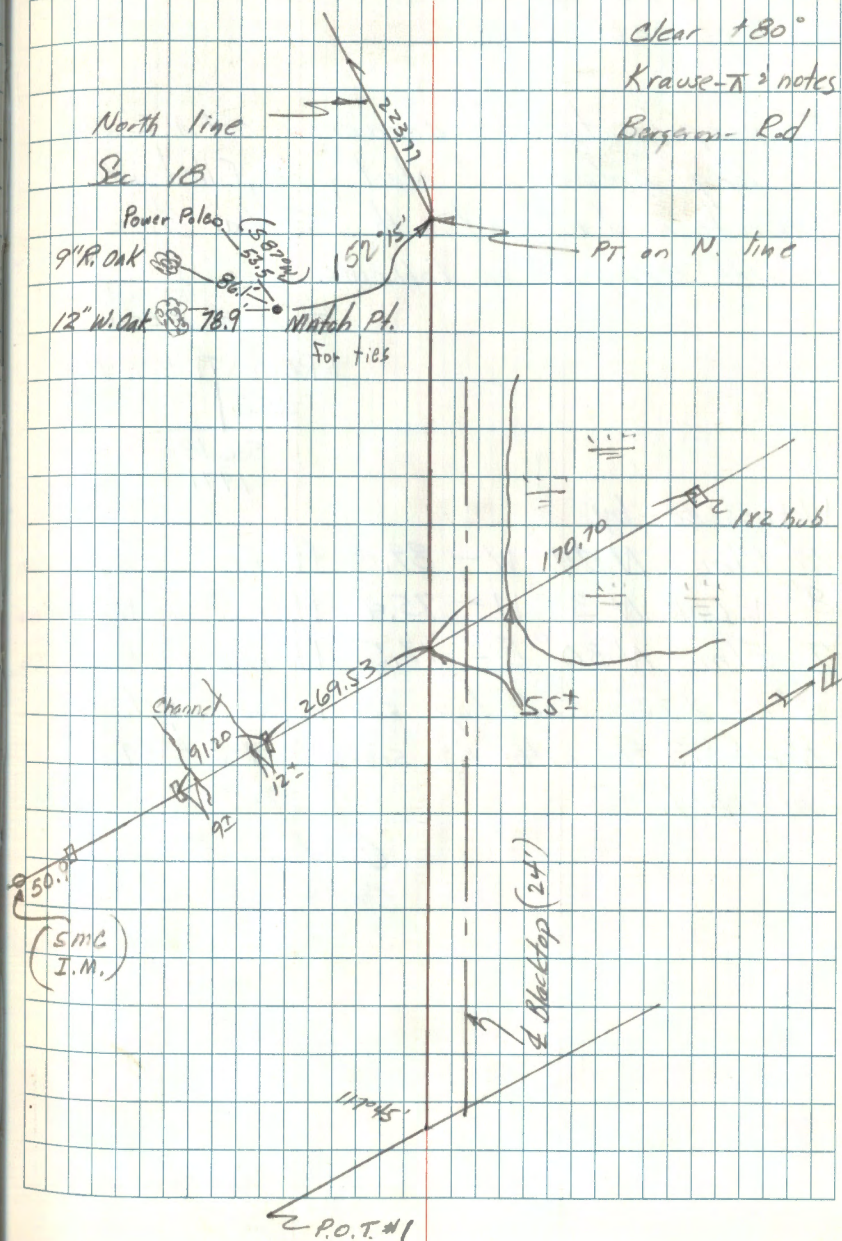 Clear +80°
Krause-π & notes
Bergeron- Rod
North line
Sec 18
223.77
Power Pole
(S87°W)
53.5
152°15'
PT. on N. line
9"R.Oak
86.1'
12" W.Oak 78.9' Match Pt.
For ties
1x2 hub
170.70
269.53
55±
Channel
91.20
12±
9±
50.9
(SMC
I.M.)
℄ Blacktop (24')
117°45'
P.O.T. #1